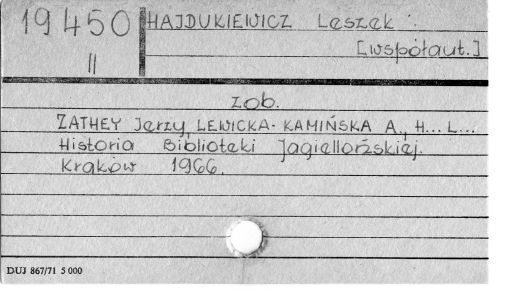 19450 HAJDUKIEWICZ Leszek
II [współaut.]
zob.
ZATHEY Jerzy, LEWICKA-KAMIŃSKA A., H... L...
Historia Biblioteki Jagiellońskiej.
Kraków 1966.
DUJ 867/71 5 000